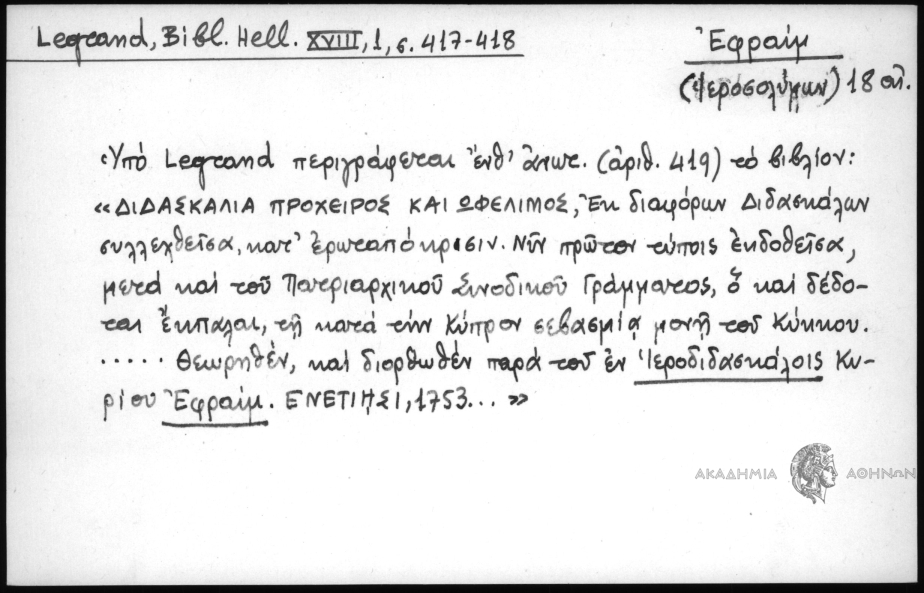 Legrand, Bibl. Hell. XVIII, 1, σ. 417-418
Ἐφραίμ
(Ἱεροσολύμων) 18 αἰ.
Ὑπό Legrand περιγράφεται ἔνθ' ἀνωτ. (ἀριθ. 419) τό βιβλίον:
«ΔΙΔΑΣΚΑΛΙΑ ΠΡΟΧΕΙΡΟΣ ΚΑΙ ΩΦΕΛΙΜΟΣ, Ἐκ διαφόρων Διδασκάλων
συλλεχθεῖσα, κατ' ἐρωταπόκρισιν. Νῦν πρῶτον τύποις ἐκδοθεῖσα,
μετά καί τοῦ Πατριαρχικοῦ Συνοδικοῦ Γράμματος, ὅ καί δέδο-
ται ἔκπαλαι, τῇ κατά τήν Κύπρον σεβασμίᾳ μονῇ τοῦ Κύκκου.
..... Θεωρηθέν, καί διορθωθέν παρά τοῦ ἐν Ἱεροδιδασκάλοις Κυ-
ρίου Ἐφραίμ. ΕΝΕΤΙῌΣΙ, 1753... »
ΑΚΑΔΗΜΙΑ ΑΘΗΝΩΝ